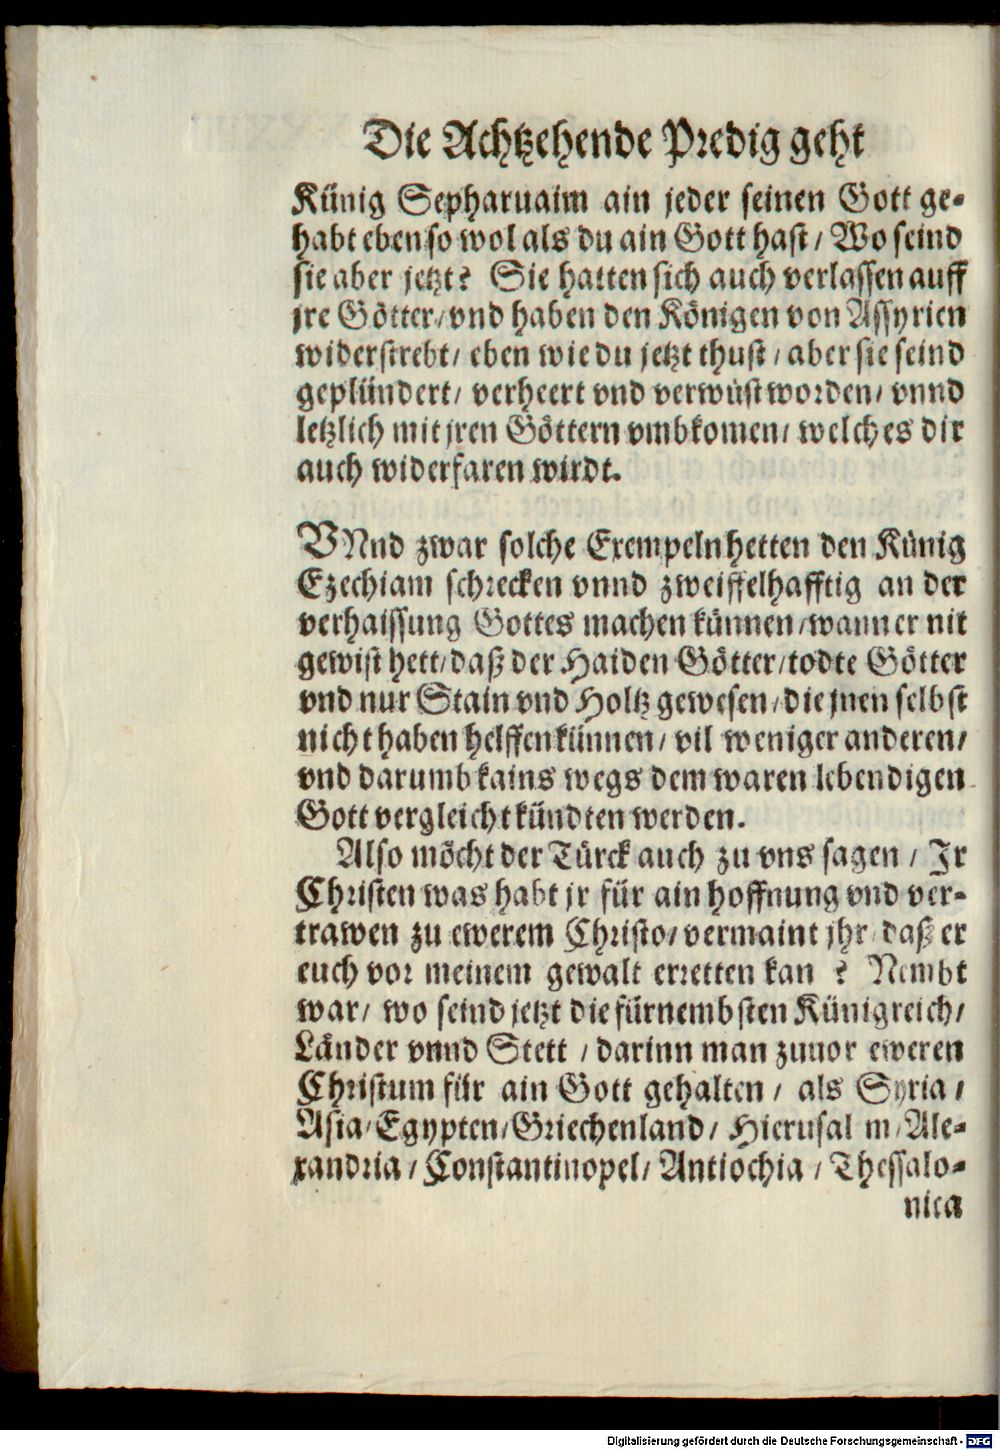 Die Achtzehende Predig geht
Künig Sepharuaim ain jeder seinen Gott ge-
habt eben so wol als du ain Gott hast / Wo seind
sie aber jetzt? Sie hatten sich auch verlassen auff
jre Götter / vnd haben den Königen von Assyrien
widerstrebt / eben wie du jetzt thust / aber sie seind
geplündert / verheert vnd verwüst worden / vnnd
letzlich mit jren Göttern vmbkomen / welches dir
auch widerfaren wirdt.
VNnd zwar solche Exempeln hetten den Künig
Ezechiam schrecken vnnd zweiffelhafftig an der
verhaissung Gottes machen künnen / wann er nit
gewist hett / daß der Haiden Götter / todte Götter
vnd nur Stain vnd Holtz gewesen / die jnen selbst
nicht haben helffen künnen / vil weniger anderen /
vnd darumb kains wegs dem waren lebendigen
Gott vergleicht kündten werden.
Also möcht der Türck auch zu vns sagen / Jr
Christen was habt jr für ain hoffnung vnd ver-
trawen zu ewerem Christo / vermaint jhr daß er
euch vor meinem gewalt erretten kan ? Nembt
war / wo seind jetzt die fürnembsten Künigreich /
Länder vnnd Stett / darinn man zuuor eweren
Christum für ain Gott gehalten / als Syria /
Asia / Egypten / Griechenland / Hierusal m / Ale-
xandria / Constantinopel / Antiochia / Thessalo-
nica
Digitalisierung gefördert durch die Deutsche Forschungsgemeinschaft - DFG